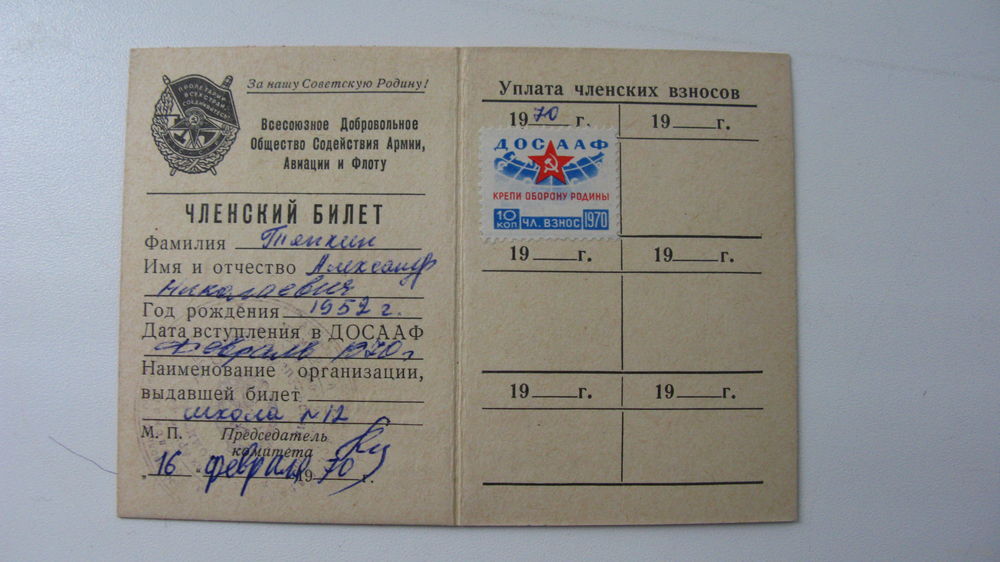 ПРОЛЕТАРИИ
ВСЕХ СТРАН,
СОЕДИНЯЙТЕСЬ!
За нашу Советскую Родину!
Всесоюзное Добровольное
Общество Содействия Армии,
Авиации и Флоту
ЧЛЕНСКИЙ БИЛЕТ
Фамилия Тяпкин
Имя и отчество Александр
Николаевич
Год рождения 1952 г.
Дата вступления в ДОСААФ
февраль 1970 г
Наименование организации,
выдавшей билет
школа №12
М. П. Председатель
комитета
„16" февраля 1970 г.
Уплата членских взносов
1970 г.
19 г.
ДОСААФ
КРЕПИ ОБОРОНУ РОДИНЫ
10 КОП ЧЛ. ВЗНОС 1970
19 г.
19 г.
19 г.
19 г.